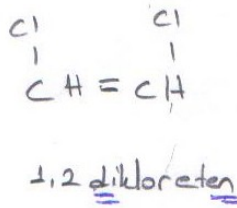 Cl Cl
CH = CH
1,2 dikloreten